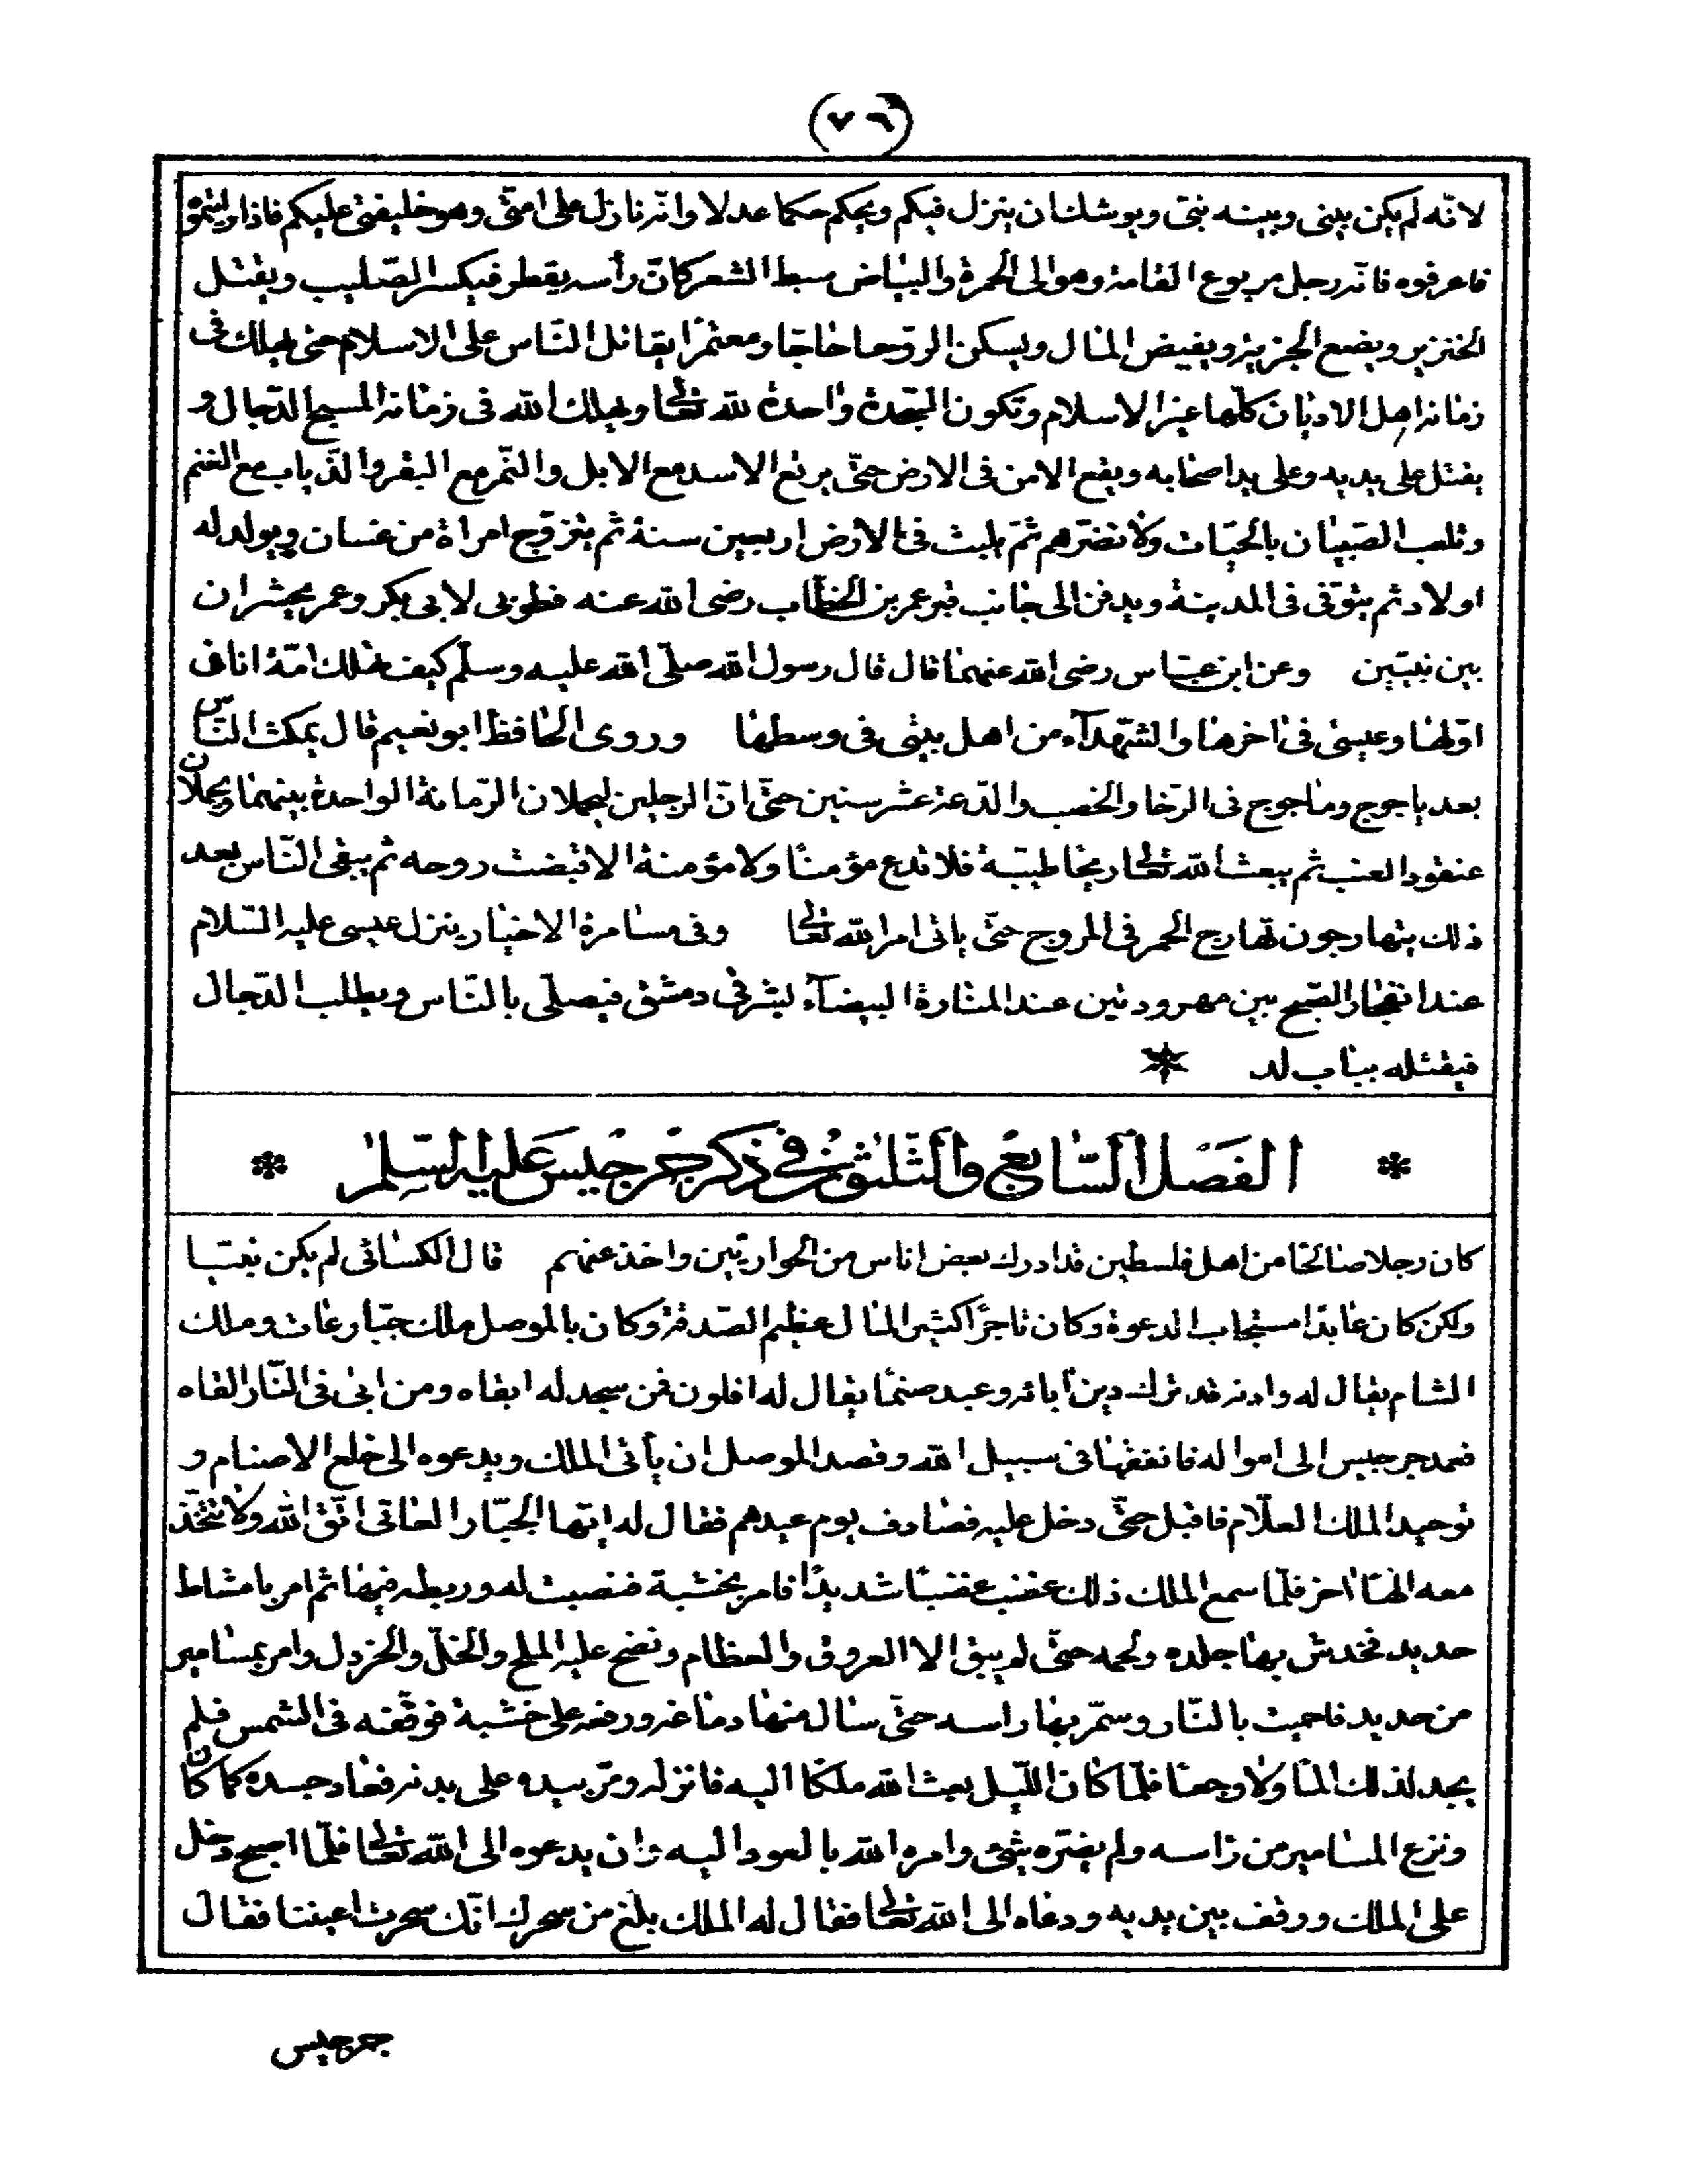 (٧٦)
لانّه لم يكن بينى وبينه نبىّ ويوشك ان ينزل فيكم ويحكم حكما عدلا وانّه نازل على امتى وهو خليفتى عليكم فاذا رايتموه
فاعرفوه فانّه رجل مربوع القامة وهو الى الحمرة والبياض سبط الشعر كانّ رأسه يقطر فيكسر الصّليب ويقتل
الخنزير ويضع الجزية ويفيض المال ويسكن الروحا حاجا ومعتمرًا يقاتل النّاس على الاسلام حتى يهلك فى
زمانه اهل الاديان كلّها غير الاسلام وتكون السّجدة واحدة لله تعالى ويهلك الله فى زمانه المسيح الدّجال و
يقتل على يديه وعلى يد اصحابه ويقع الامن فى الارض حتّى يرتع الاسد مع الابل والنّمر مع البقر والذّياب مع الغنم
وتلعب الصّبيان بالحيّات ولا تضرّهم ثمّ يلبث فى الارض اربعين سنة ثم يتزوّج امراة من غسان ويولد له
اولاد ثم يتوفى فى المدينة ويدفن الى جانب قبر عمر بن الخطاب رضى الله عنه فطوبى لابى بكر وعمر يحشران
بين نبيّين وعن ابن عبّاس رضى الله عنهما قال قال رسول الله صلّى الله عليه وسلّم كيف تهلك امّة انا فى
اوّلها وعيسى فى اخرها والشّهدآء من اهل بيتى فى وسطها وروى الحافظ ابو نعيم قال يمكث النّاس
بعد ياجوج وماجوج فى الرّخا والخصب والدّعة عشر سنين حتّى انّ الرجلين ليحملان الرّمانة الواحدة بينهما ويحملان
عنقود العنب ثم يبعث الله تعالى ريحا طيبّة فلا تدع مؤمنًا ولا مؤمنة الا قبضت روحه ثم يبقى النّاس بعد
ذلك يتهارجون تهارج الحمر فى المروج حتّى ياتى امر الله تعالى وفى مسامرة الاخيار ينزل عيسى عليه السّلام
عند انفجار الصّبح بين مهرودتين عند المنارة البيضآء بشرقى دمشق فيصلّى بالنّاس ويطلب الدّجال
فيقتله بباب لد *
* الفصل السّابع والثّلثون فى ذكر جرجيس عليه السّلم *
كان رجلا صالحا من اهل فلسطين قد ادرك بعض اناس من الحواريّين واخذ عنهم قال الكسائى لم يكن نبيّا
ولكن كان عابدًا مستجاب الدعوة وكان تاجرًا كثير المال عظيم الصّدقة وكان بالموصل ملك جبّار عات وملك
الشام يقال له وادنه قد ترك دين ابائه وعبد صنمًا يقال له افلون فمن سجد له ابقاه ومن ابى فى النّار القاه
فعمد جرجيس الى امواله فانفقها فى سبيل الله وقصد الموصل ان يأتى الملك ويدعوه الى خلع الاصنام و
توحيد الملك العلّام فاقبل حتّى دخل عليه فصادف يوم عيدهم فقال له ايّها الجبّار العاتى اتّق الله ولا تتّخذ
معه الها اخر فلمّا سمع الملك ذلك غضب غضبًا شديدًا فامر بخشبة فنصبت له وربطه فيها ثم امر بامشاط
حديد فخدش بها جلده ولحمه حتّى لم يبق الا العروق والعظام ونضح عليه الملح والخلّ والخردل وامر بمسامير
من حديد فاحميت بالنّار وسمّر بها راسه حتّى سال منها دماغه ورفعه على خشبة فوقفه فى الشمس فلم
يجد لذلك الما ولا وجعا فلمّا كان اللّيل بعث الله ملكا اليه فانزله ومرّ بيده على بدنه فعاد جسده كما كان
ونزع المسامير من راسه ولم يضرّه شئ وامره الله بالعود اليه وان يدعوه الى الله تعالى فلمّا اصبح دخل
على الملك ووقف بين يديه ودعاه الى الله تعالى فقال له الملك بلغ من سحرك انّك سحرت اعيننا فقال
جرجيس